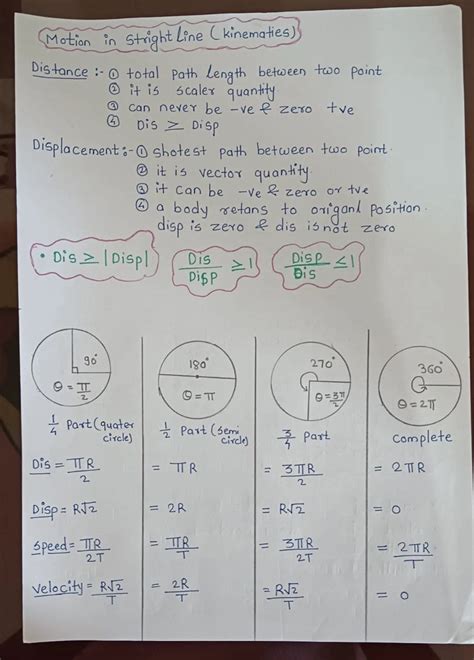 Motion in Stright Line (Kinematies)
Distance :- ① total path length between two point
② it is scaler quantity.
③ can never be -ve & zero +ve
④ Dis ≥ Disp
Displacement:- ① shotest path between two point.
② it is vector quantity.
③ it can be -ve & zero or tve
④ a body retans to origanl position.
disp is zero & dis is not zero
• Dis ≥ |Disp|
Dis/Disp ≥ 1
Disp/Dis ≤ 1
90°
θ = π/2
180°
θ = π
270°
θ = 3π/2
360°
θ = 2π
1/4 Part (quater circle)
1/2 Part (semi circle)
3/4 Part
complete
Dis = πR/2
= πR
= 3πR/2
= 2πR
Disp = R√2
= 2R
= R√2
= 0
speed = πR/2T
= πR/T
= 3πR/2T
= 2πR/T
velocity = R√2/T
= 2R/T
= R√2/T
= 0